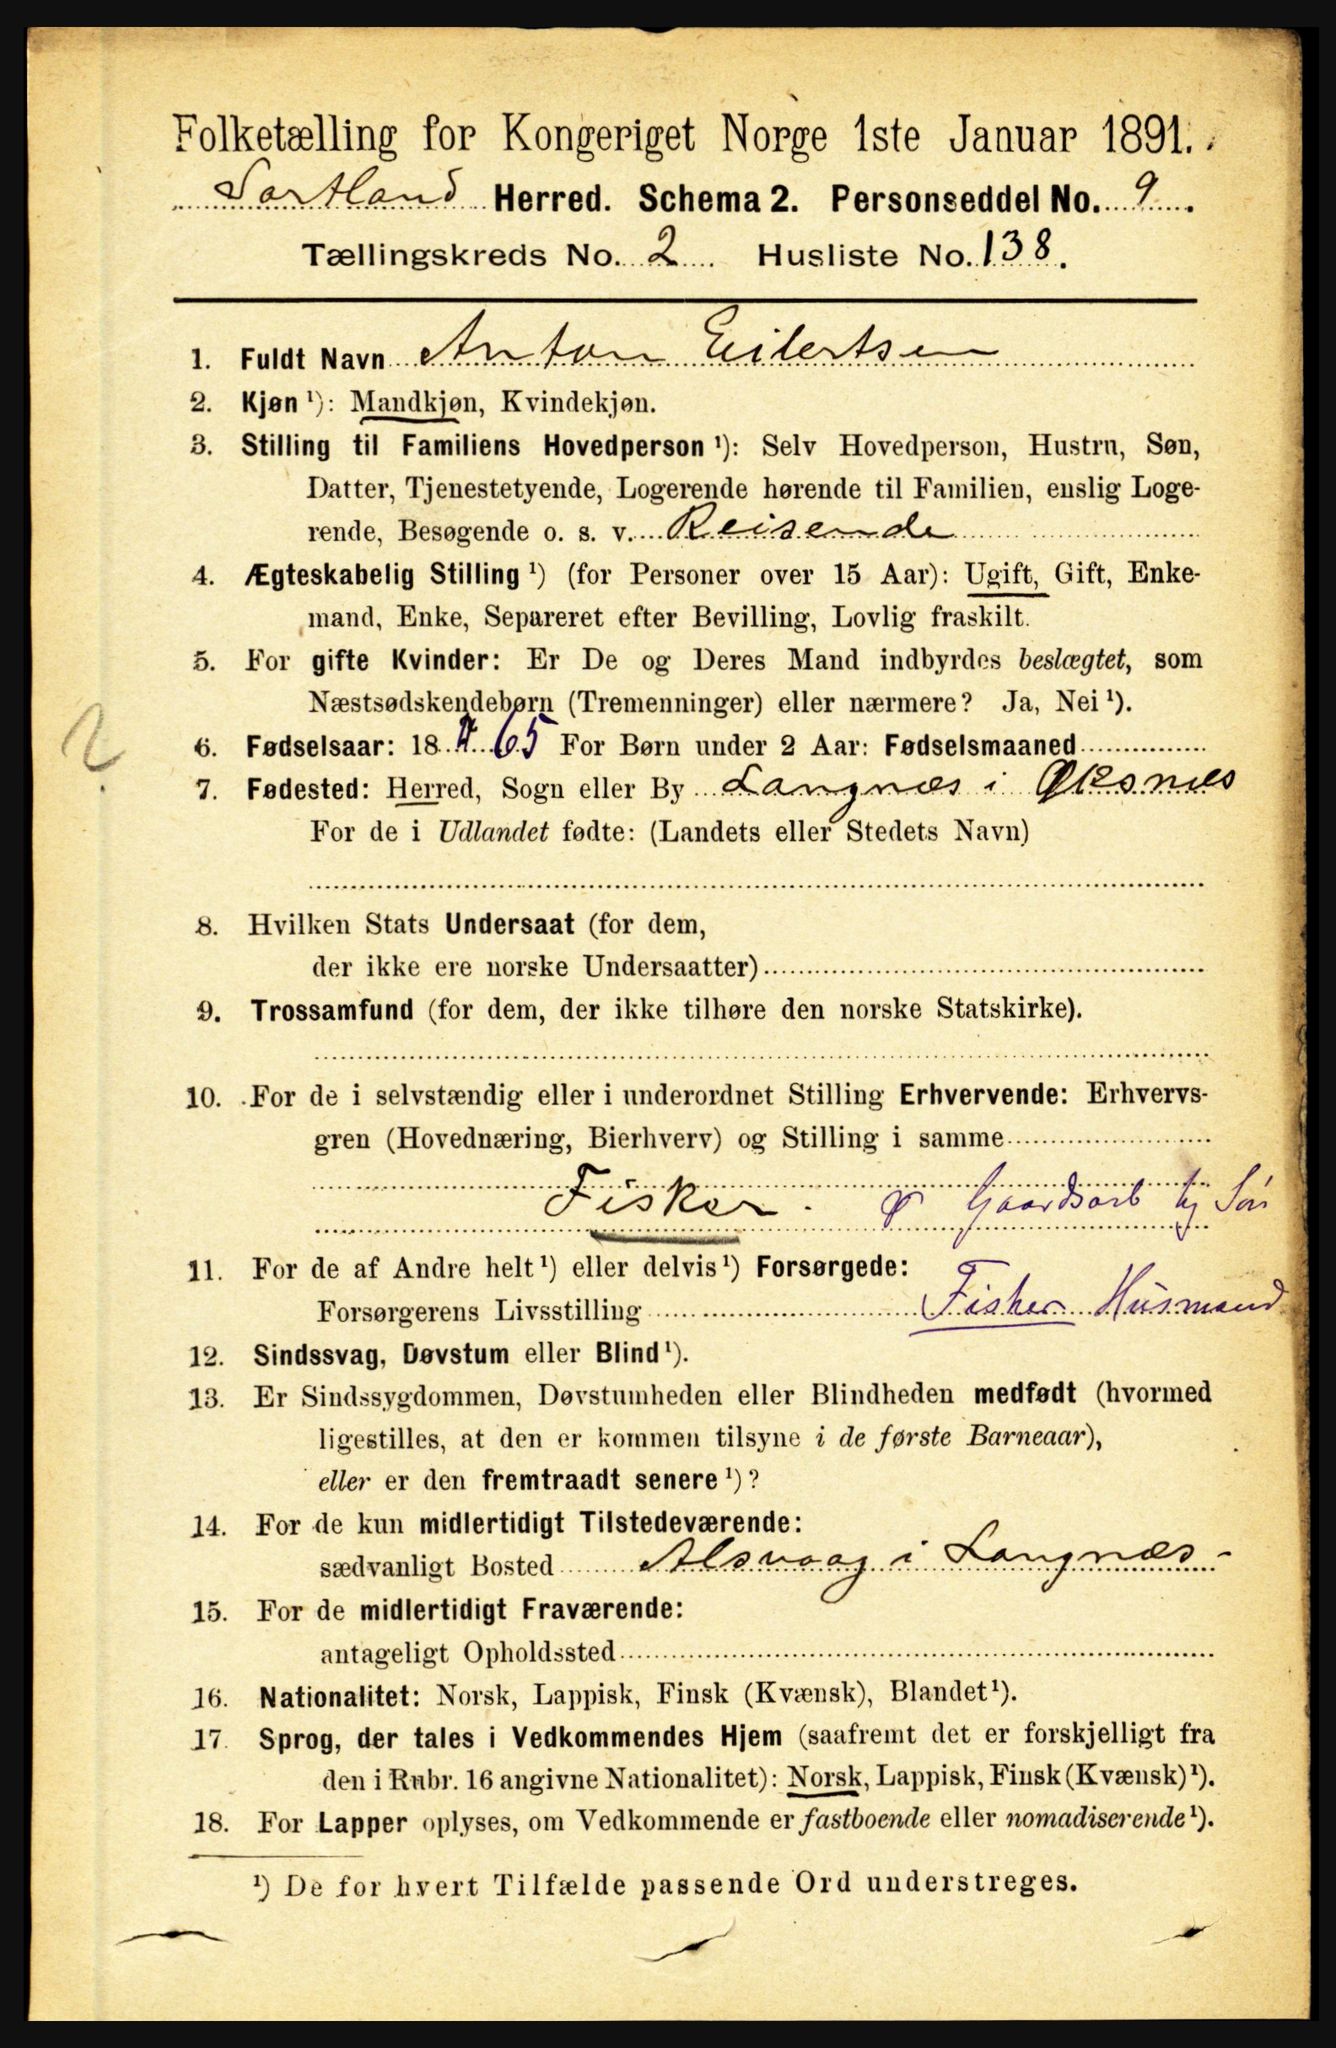 Folketælling for Kongeriget Norge 1ste Januar 1891.
Sortland Herred. Schema 2. Personseddel No. 9.
Tællingskreds No. 2. Husliste No. 138.
1. Fuldt Navn Anton Eilertsen
2. Kjøn ¹): Mandkjøn, Kvindekjøn.
3. Stilling til Familiens Hovedperson ¹): Selv Hovedperson, Hustru, Søn,
Datter, Tjenestetyende, Logerende hørende til Familien, enslig Loge-
rende, Besøgende o. s. v. Reisende
4. Ægteskabelig Stilling ¹) (for Personer over 15 Aar): Ugift, Gift, Enke-
mand, Enke, Separeret efter Bevilling, Lovlig fraskilt.
5. For gifte Kvinder: Er De og Deres Mand indbyrdes beslægtet, som
Næstsødskendebørn (Tremenninger) eller nærmere? Ja, Nei ¹).
2
6. Fødselsaar: 18 65 For Børn under 2 Aar: Fødselsmaaned
7. Fødested: Herred, Sogn eller By Langnæs i Øksnæs
For de i Udlandet fødte: (Landets eller Stedets Navn)
8. Hvilken Stats Undersaat (for dem,
der ikke ere norske Undersaatter)
9. Trossamfund (for dem, der ikke tilhøre den norske Statskirke).
10. For de i selvstændig eller i underordnet Stilling Erhvervende: Erhvervs-
gren (Hovednæring, Bierhverv) og Stilling i samme
Fisker. Gaardsarb
11. For de af Andre helt ¹) eller delvis ¹) Forsørgede:
Forsørgerens Livsstilling Fisker Husmand
12. Sindssvag, Døvstum eller Blind ¹).
13. Er Sindssygdommen, Døvstumheden eller Blindheden medfødt (hvormed
ligestilles, at den er kommen tilsyne i de første Barneaar),
eller er den fremtraadt senere ¹)?
14. For de kun midlertidigt Tilstedeværende:
sædvanligt Bosted Alsvaag i Langnæs
15. For de midlertidigt Fraværende:
antageligt Opholdssted
16. Nationalitet: Norsk, Lappisk, Finsk (Kvænsk), Blandet ¹).
17. Sprog, der tales i Vedkommendes Hjem (saafremt det er forskjelligt fra
den i Rubr. 16 angivne Nationalitet): Norsk, Lappisk, Finsk (Kvænsk) ¹).
18. For Lapper oplyses, om Vedkommende er fastboende eller nomadiserende ¹).
¹) De for hvert Tilfælde passende Ord understreges.